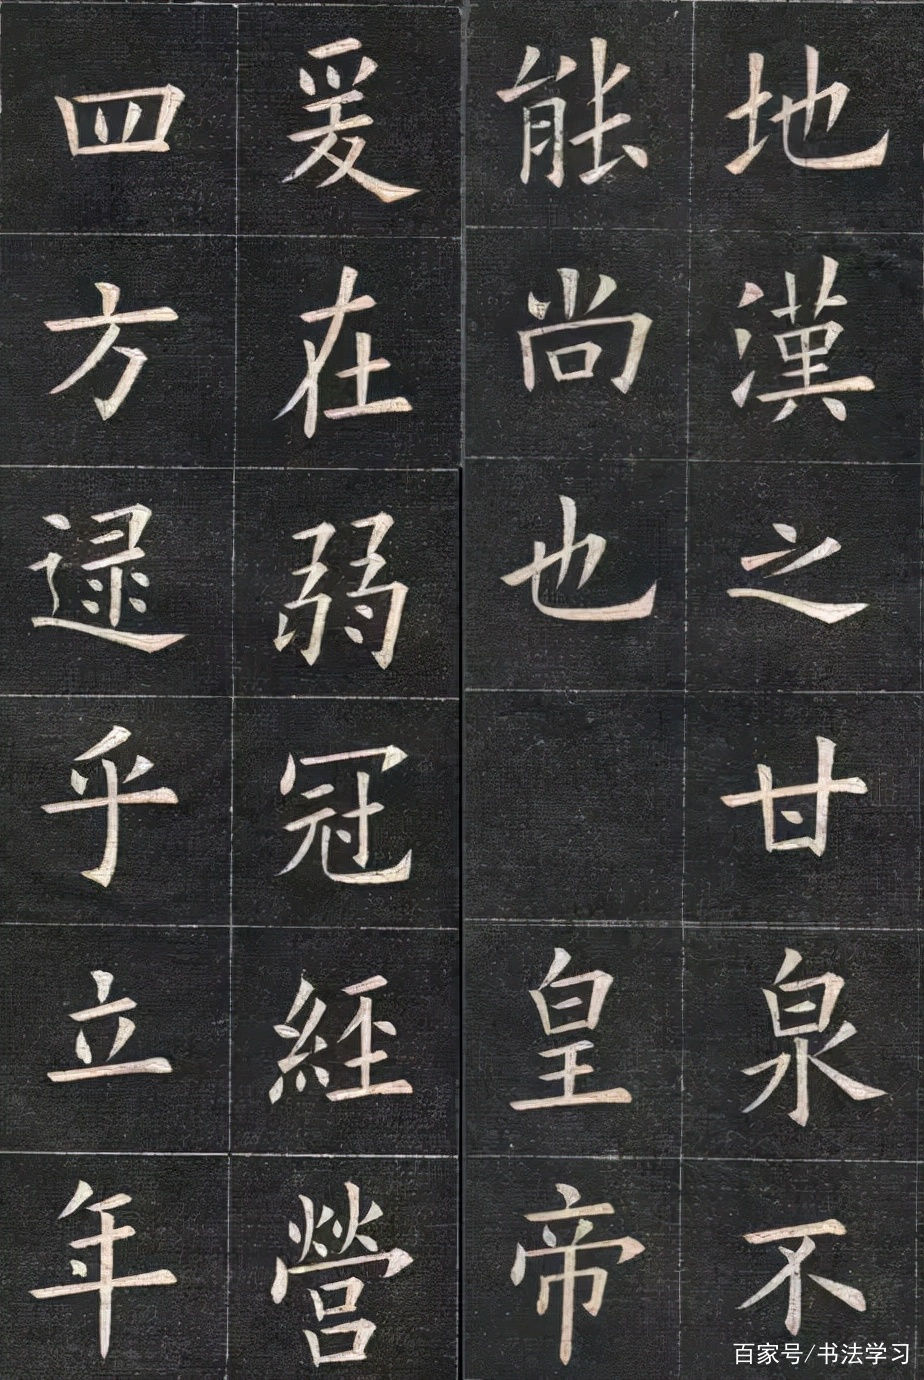 地漢之甘泉不
能尚也皇帝
爰在弱冠經營
四方逯乎立年
百家号/书法学习